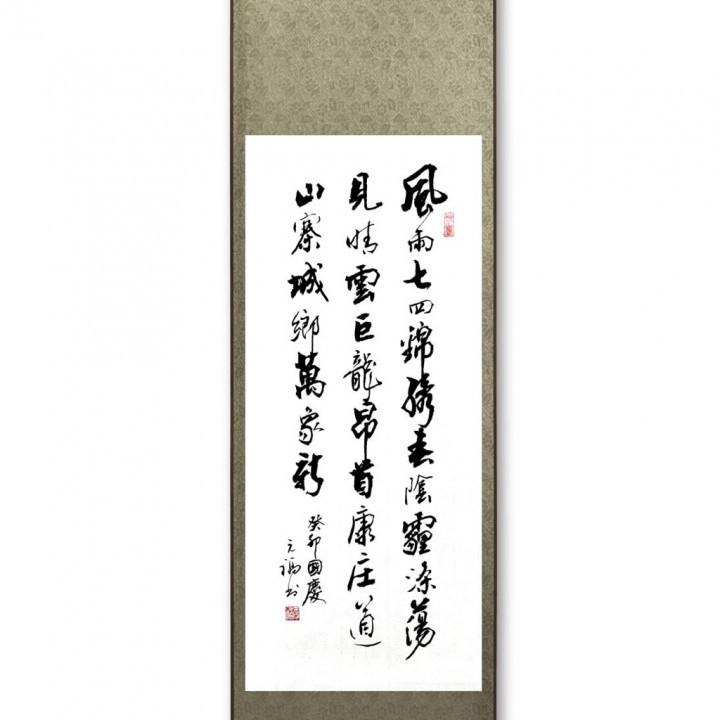 風雨七四錦綉春陰霾滌蕩
見晴雲巨龍昂首康庄道
山寨城鄉萬象新
癸卯國慶
元福书